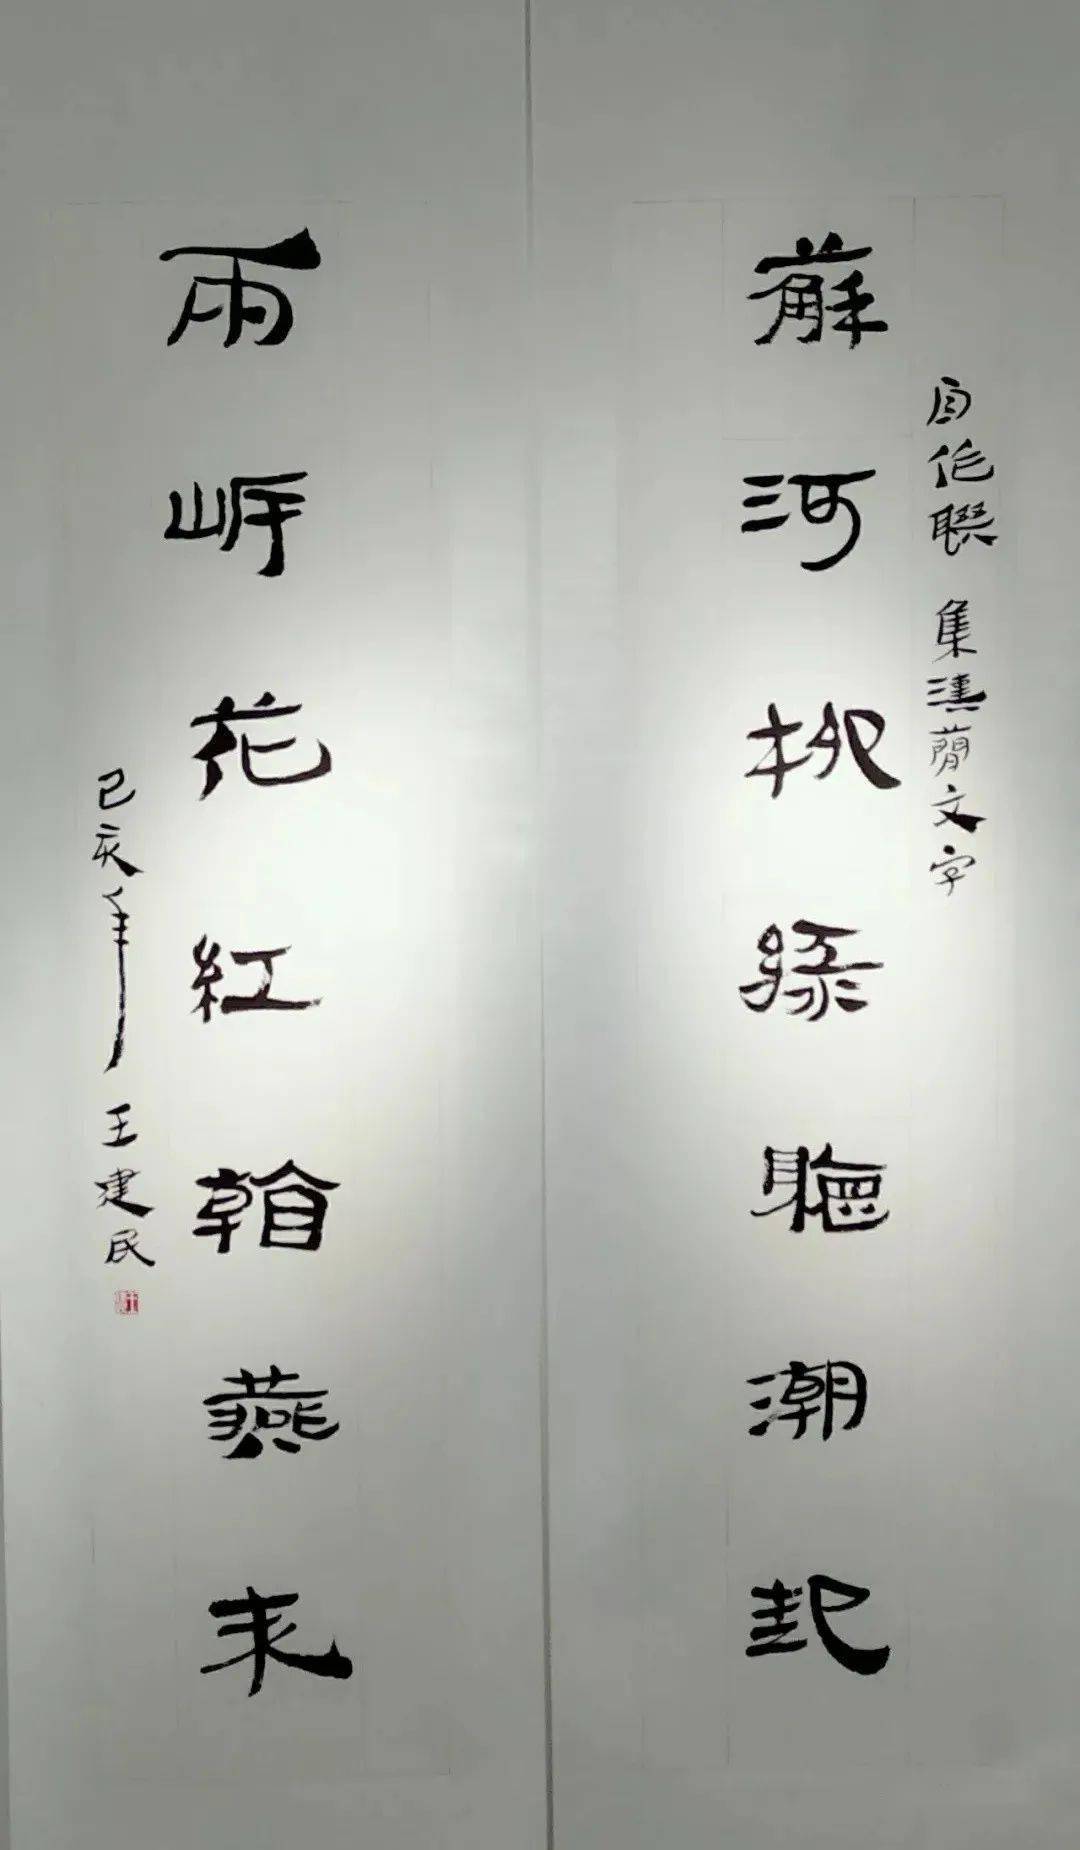 自作聯 集漢簡文字
蘇河柳綠聽潮起
兩岸花紅看燕來
己亥年 王建民